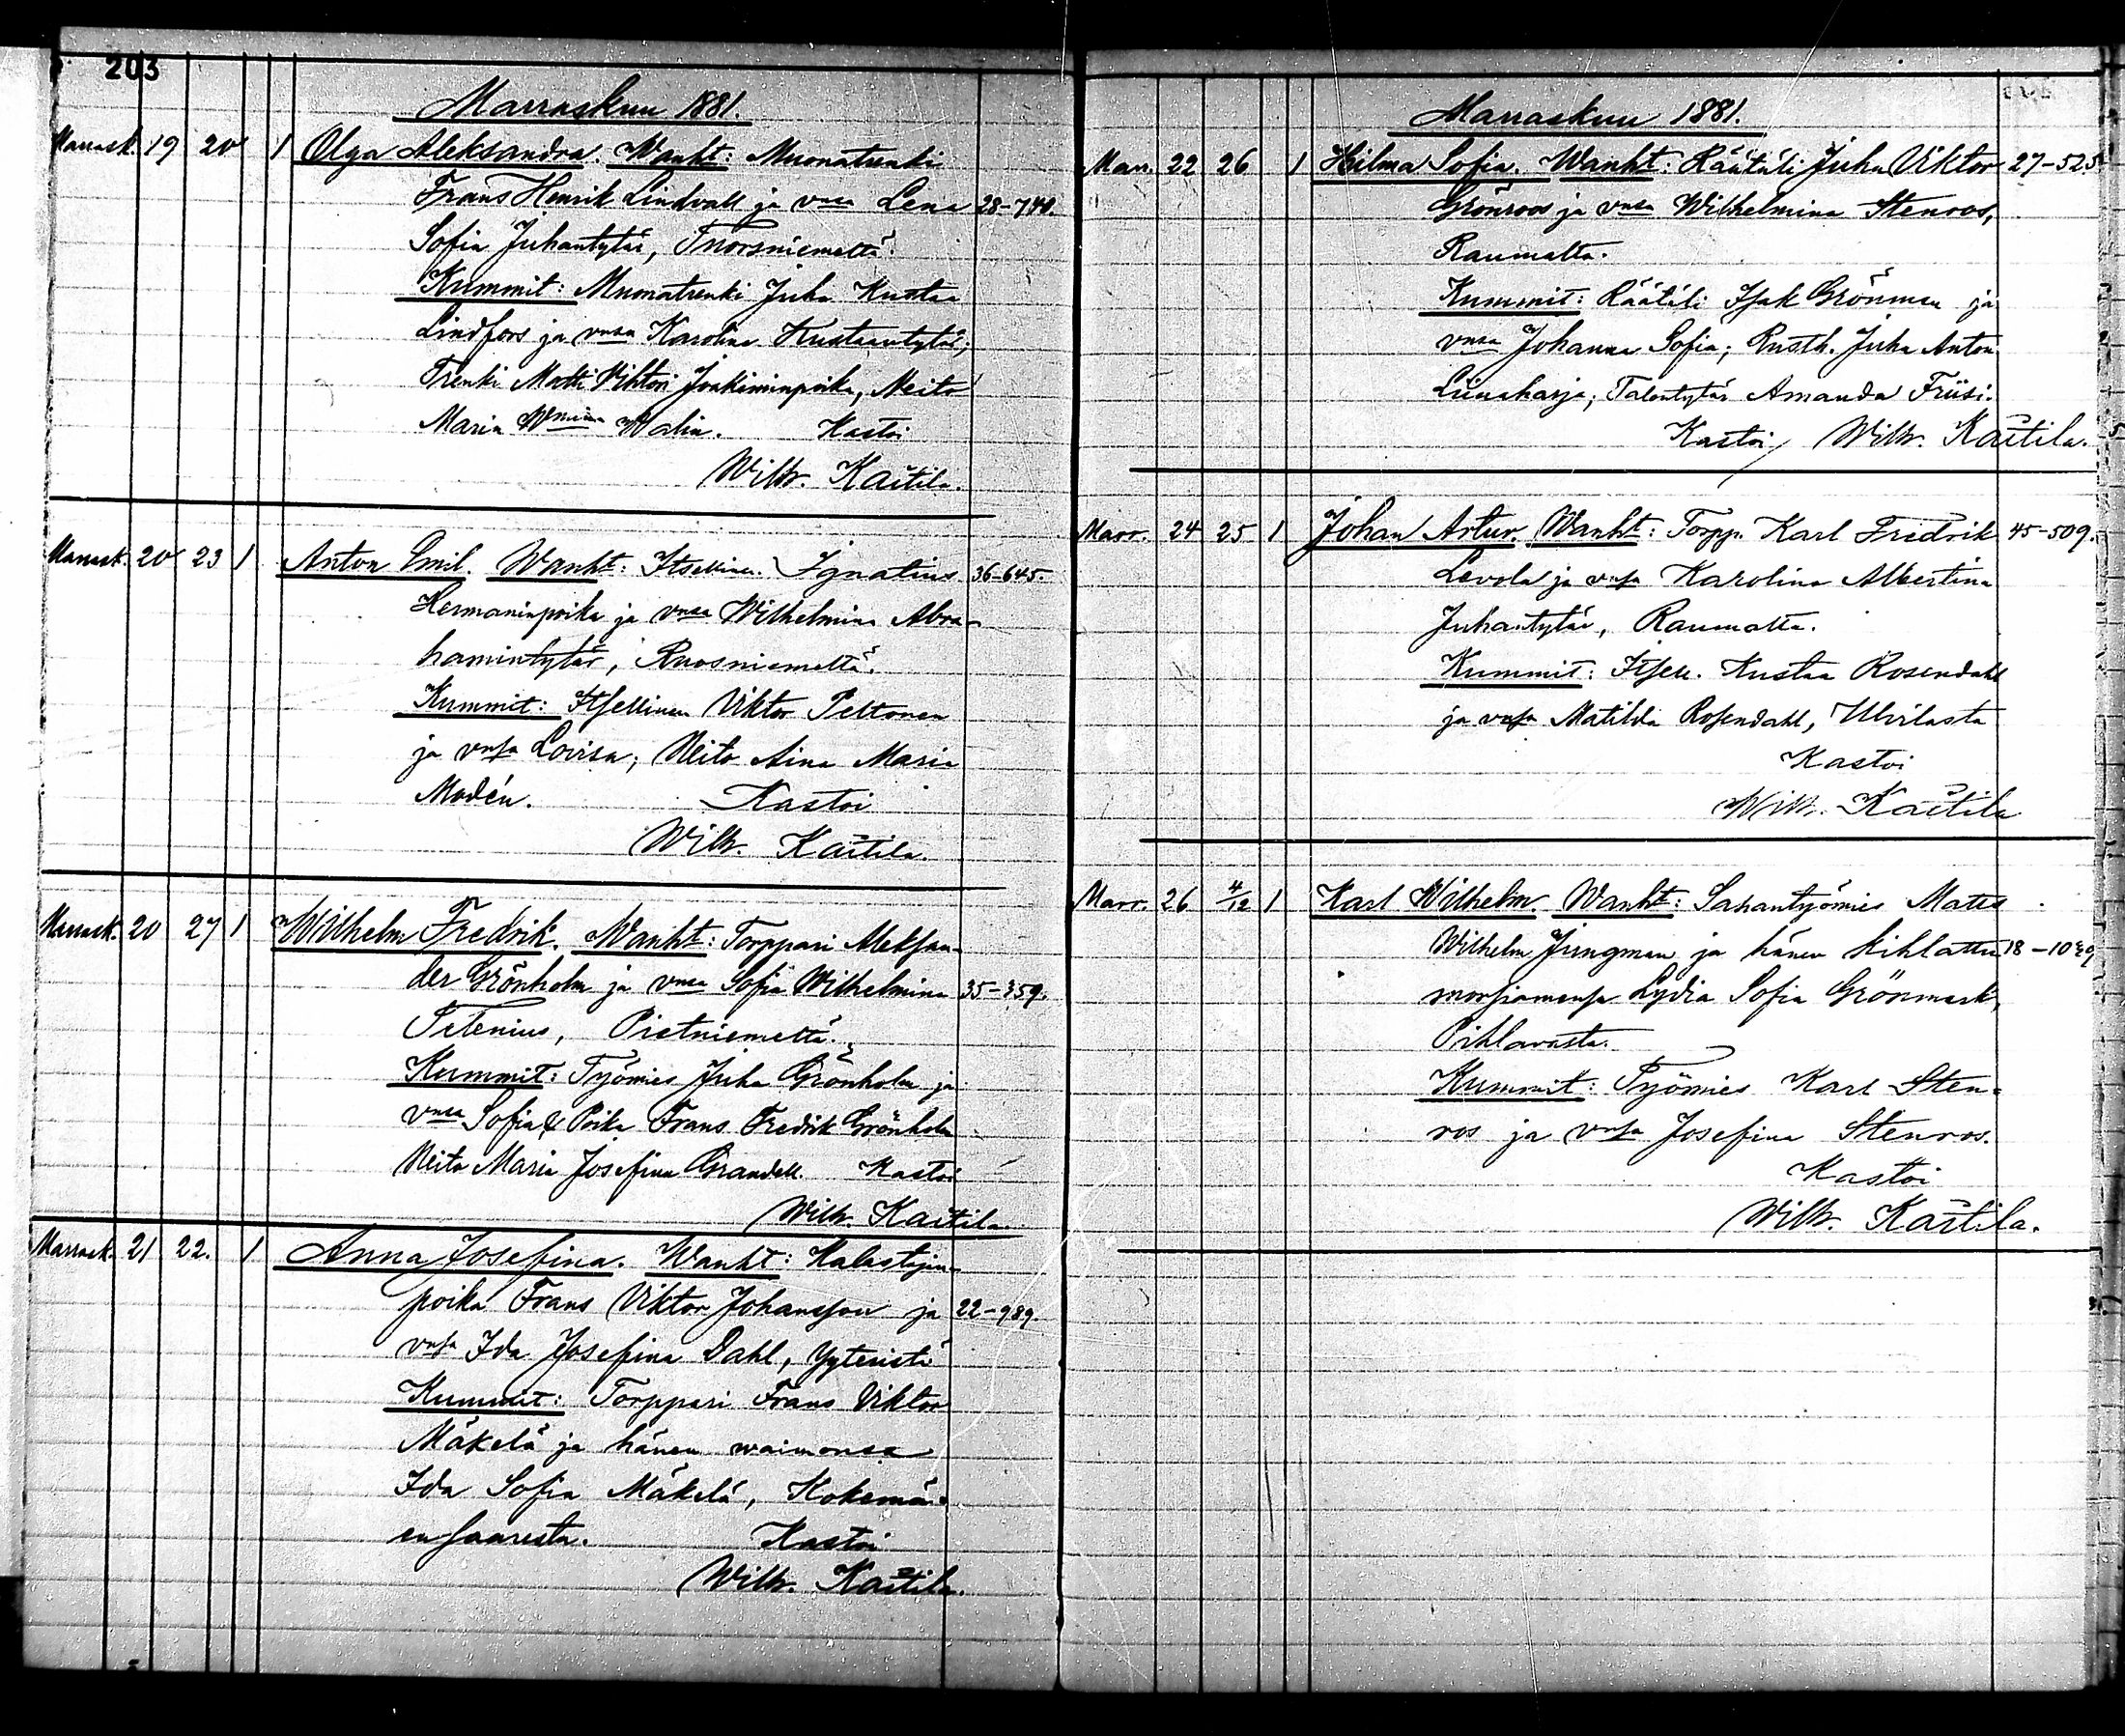 203
Marraskuu 1881.
Marrask. 19 20 1 Olga Aleksandra. Wanht: Muonatrenki
Frans Henrik Lindvall ja vnsa Lena 28-740.
Sofia Juhantytär,
Kummit: Muonatrenki Juha Kustaa
Lindfors ja vnsa Karolina Kustaantytär;
Trenki Matti Vihtori Joakiminpoika, Neito
Maria Wmiina Walin. Kastoi
Wilh. Kaitila.
Marrask. 20 23 1 Anton Emil. Wanht: Itsellinen Ignatius 36-645.
Hermaninpoika ja vnsa Wilhelmina Abra-
hamintytär, Ruosniemeltä.
Kummit: Itsellinen Viktor Peltonen
ja vnsa Lovisa; Neito Aina Maria
Modén. Kastoi
Wilh. Kaitila.
Marrask. 20 27 1 Wilhelm Fredrik. Wanht: Torppari Aleksan-
der Grönholm ja vnsa Sofia Wilhelmina 35-359.
Pietniemeltä.
Kummit: Työmies Juha Grönholm ja
vnsa Sofia & Poika Frans Fredrik Grönholm
Neito Maria Josefina Grandell. Kastoi
Wilh. Kaitila
Marrask. 21 22. 1 Anna Josefina. Wanht: Kalastajan-
poika Frans Viktor Johansson ja 22-989.
vnsa Ida Josefina Dahl, Yyteristä
Kummit: Torppari Frans Viktor
Mäkelä ja hänen waimonsa
Ida Sofia Mäkelä, Kokemä-
ensaaresta. Kastoi
Wilh. Kaitila.
Marraskuu 1881.
Marr. 22 26 1 Hilma Sofia. Wanht: Räätäli Juha Viktor 27-525
Grönroos ja vnsa Wilhelmina Stenroos,
Raumalta.
Kummit: Räätäli Isak Grönman ja
vnsa Johanna Sofia; Rusth. Juha Anton
Liinaharja; Talontytär Amanda Friisi.
Kastoi Wilh. Kaitila.
Marr. 24 25 1 Johan Artur. Wanht: Torpp. Karl Fredrik 45-509.
Levola ja vnsa Karolina Albertina
Juhantytär, Raumalta.
Kummit: Itsell. Kustaa Rosendahl
ja vnsa Matilda Rosendahl, Ulvilasta
Kastoi
Wilh. Kaitila
Marr. 26 4/12 1 Karl Wilhelm. Wanht: Sahantyömies Mats
Wilhelm Jungman ja hänen kihlattu 18-1029
morsiamensa Lydia Sofia Grönmark,
Pihlavasta.
Kummit: Työmies Karl Sten-
ros ja vnsa Josefina Stenros.
Kastoi
Wilh. Kaitila.